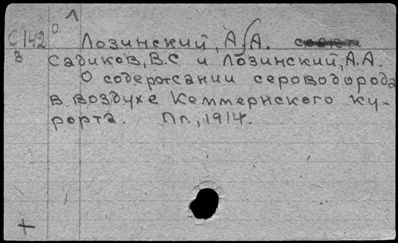 Л
С142
О
Лозинский, А. А.
В
Садиков, В.С. и Лозинский, А.А.
О содержании сероводорода
в воздухе Кеммернского ку-
рорта. Пг., 1914.
+